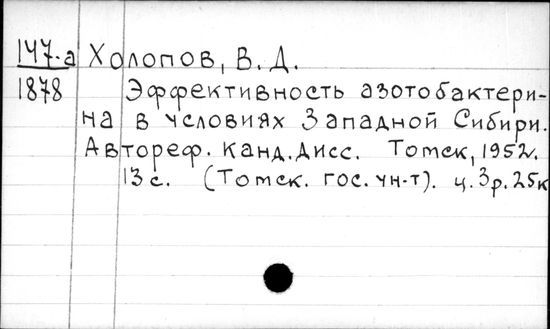 147.а Холопов, В. Д.
1878 Эффективность азотобактери-
на в условиях Западной Сибири.
Автореф. канд. дисс. Томск, 1952.
13 с. (Томск. гос. ун-т). ц. 3 р. 25к